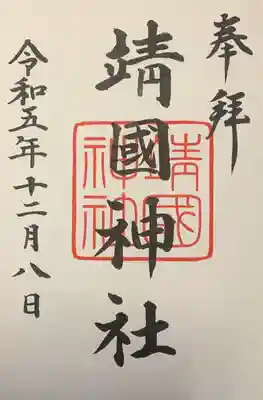 奉拝
靖國神社
靖國
神社
令和五年十二月八日